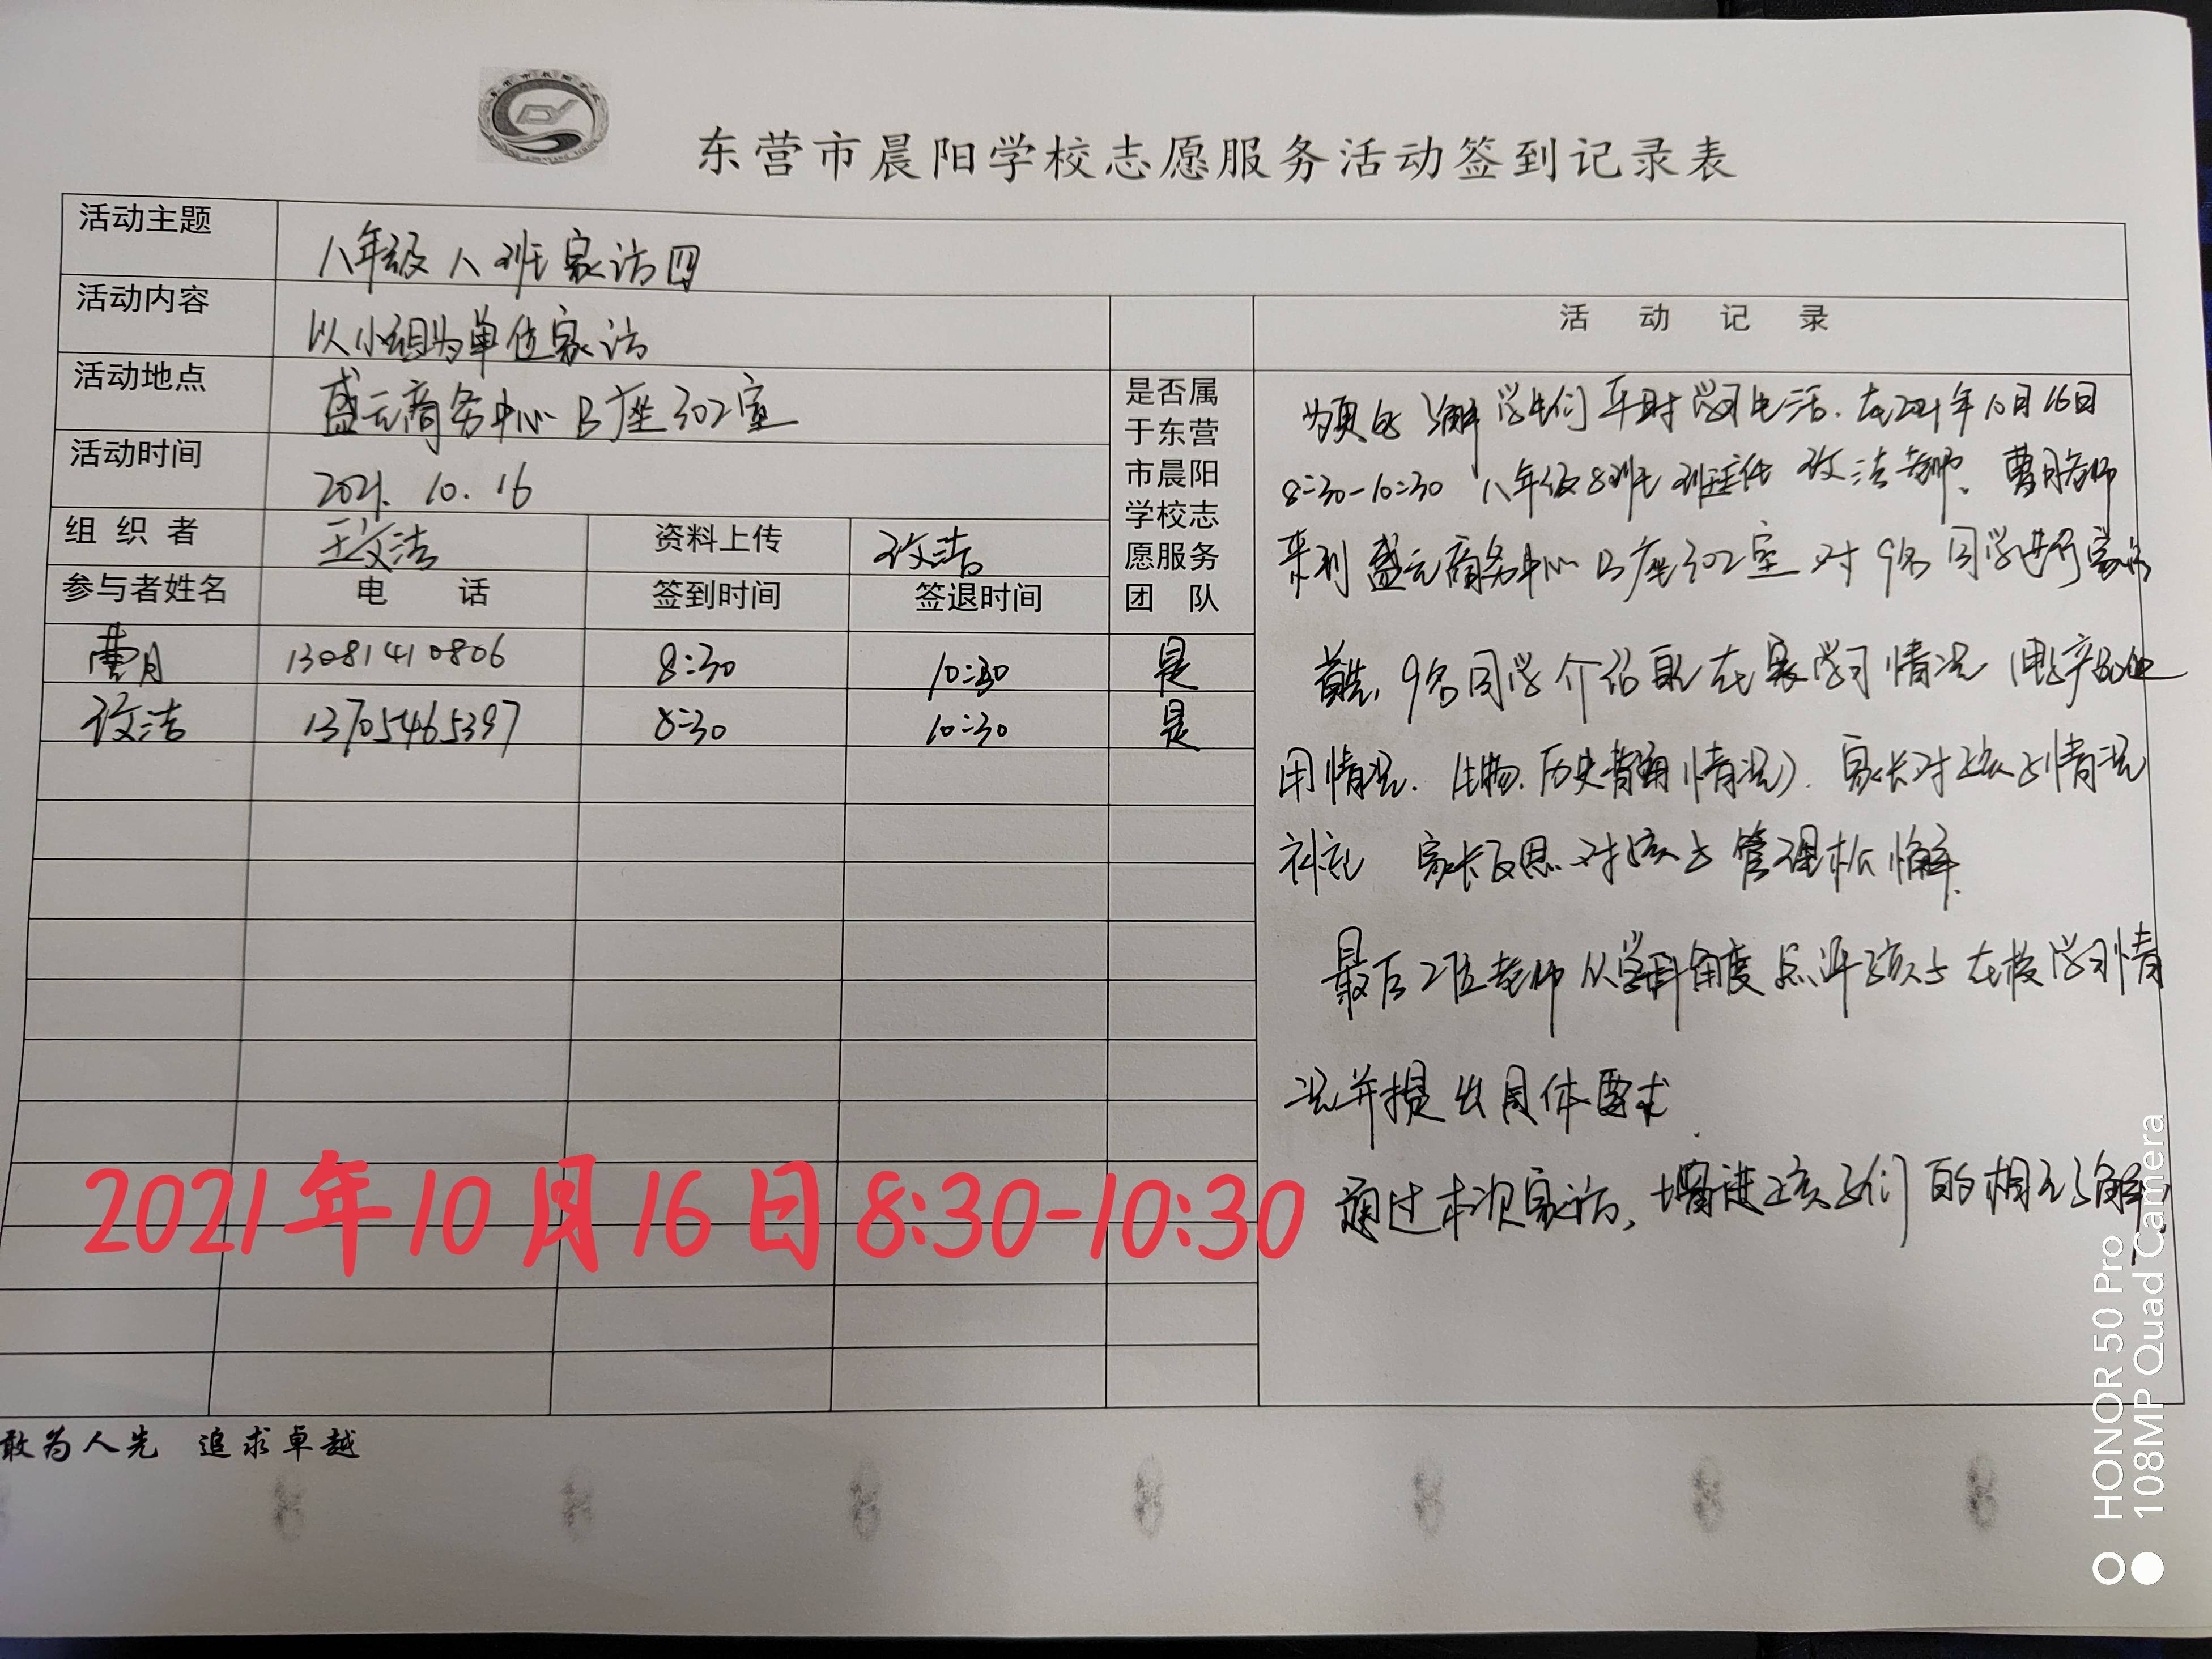 东营市晨阳学校志愿服务活动签到记录表
活动主题 八年级八班家访四
活动内容 以小组为单位家访
活动地点 盛元商务中心B座302室
活动时间 2021.10.16
组织者 王文洁 资料上传 王文洁
参与者姓名 电话 签到时间 签退时间
是否属
于东营
市晨阳
学校志
愿服务
团队
曹月 13081410806 8:30 10:30 是
王文洁 13705465397 8:30 10:30 是
活动记录
为更的了解学生们平时学习生活.在2021年10月16日
8:30-10:30 八年级8班班主任 王文洁老师、曹月老师
来到盛元商务中心B座302室对9名同学进行家访
首先,9名同学介绍自己在家学习情况(电子产品使
用情况.生物.历史背诵情况).家长对孩子情况
补充 家长反思对孩子管理松懈.
最后2位老师从学科角度点评孩子在校学习情
况并提出具体要求.
通过本次家访,增进孩子们的相互了解,
2021年10月16日8:30-10:30
敢为人先 追求卓越
HONOR 50 Pro
108MP Quad Camera